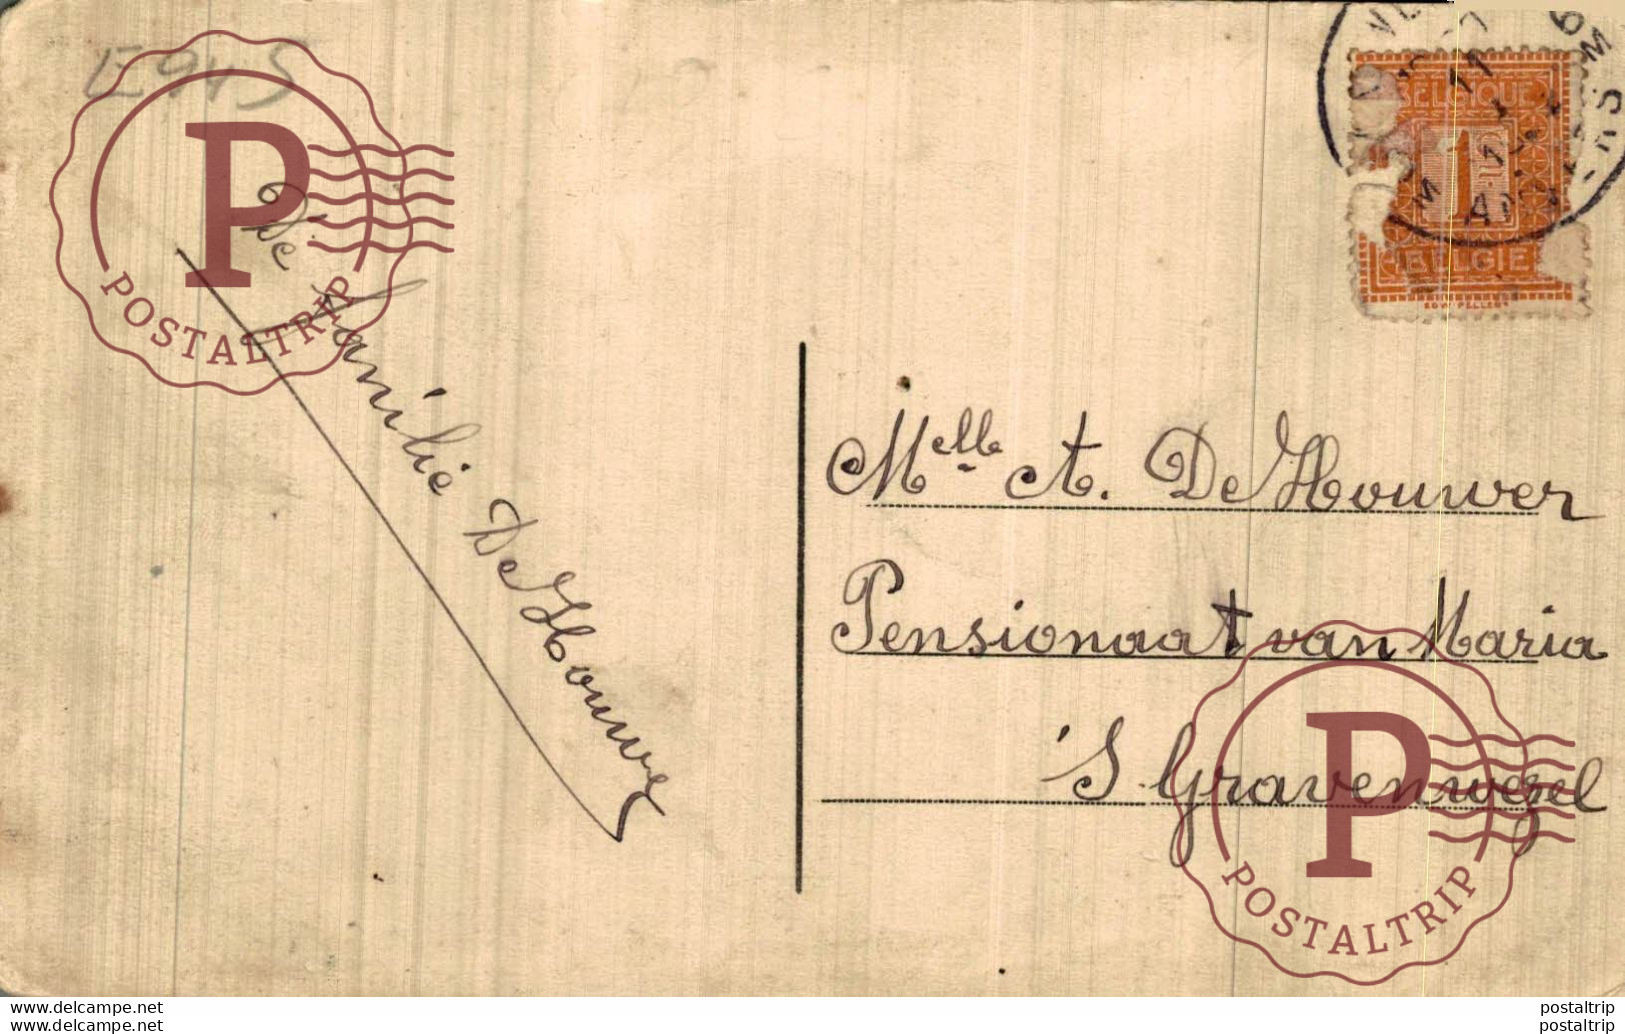 E945
P
POSTALTRIP
De Familie De Houwer
BELGIQUE
1
BELGIE
Melle A. De Houwer
Pensionaat van Maria
'S Gravenwezel
P
POSTALTRIP
postaltrip
postaltrip
delcampe.net
delcampe.net